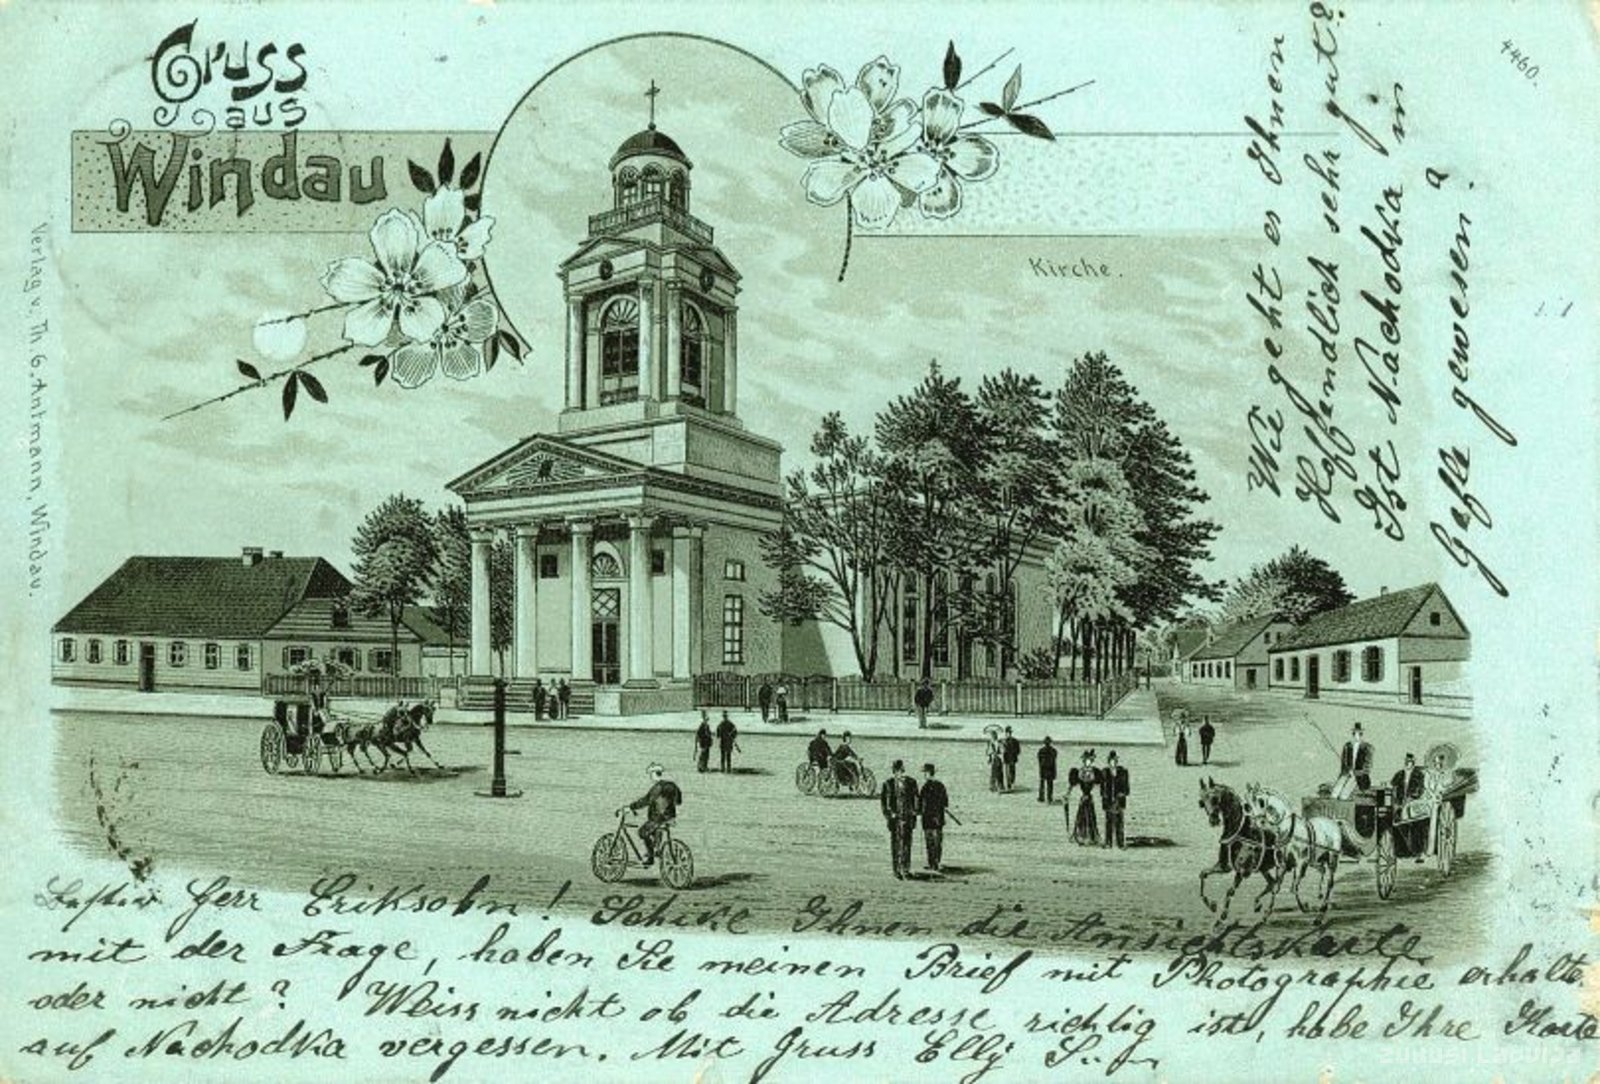 Gruss
aus
Windau
Kirche.
4460.
Verlag v. Th. G. Antmann, Windau.
Herr Eriksohn! Schike Ihnen die Ansichtskarte
mit der Frage, haben Sie meinen Brief mit Photographie erhalte
oder nicht? Weiss nicht ob die Adresse richtig ist, habe Ihre Karte
auf Nachodka vergessen. Mit Gruss Elly
Wie geht es Ihnen
Hoffendlich sehr gut?
Ist Nachodka in
Gefle gewesen?